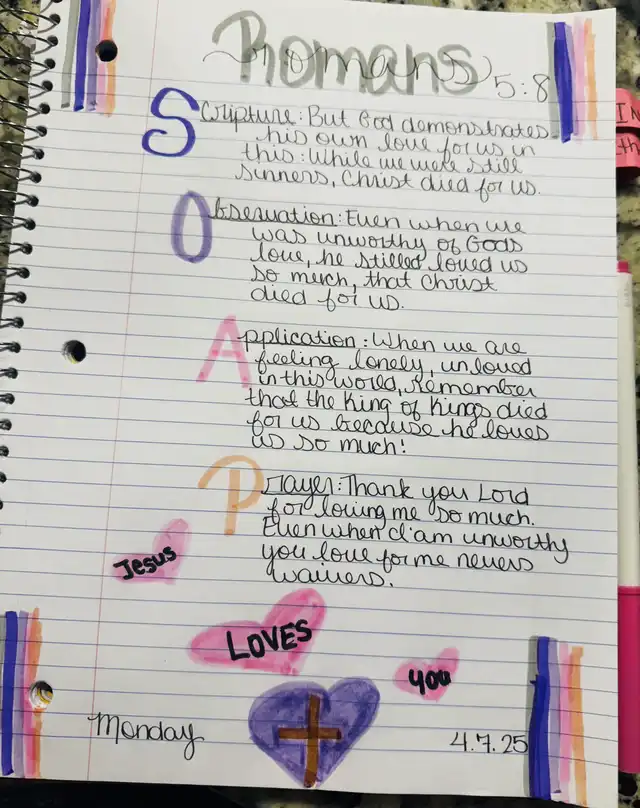 Romans 5:8
Scripture: But God demonstrates
his own love for us in
this: While we were still
sinners, Christ died for us.
Observation: Even when we
was unworthy of Gods
love, he stilled loved us
so much, that Christ
died for us.
Application: When we are
feeling lonely, unloved
in this world, remember
that the King of Kings died
for us because he loves
us so much!
Prayer: Thank you Lord
for loving me so much.
Even when I'am unworthy
you love for me nevers
waivers.
Jesus
LOVES
you
Monday
4.7.25
IN
th